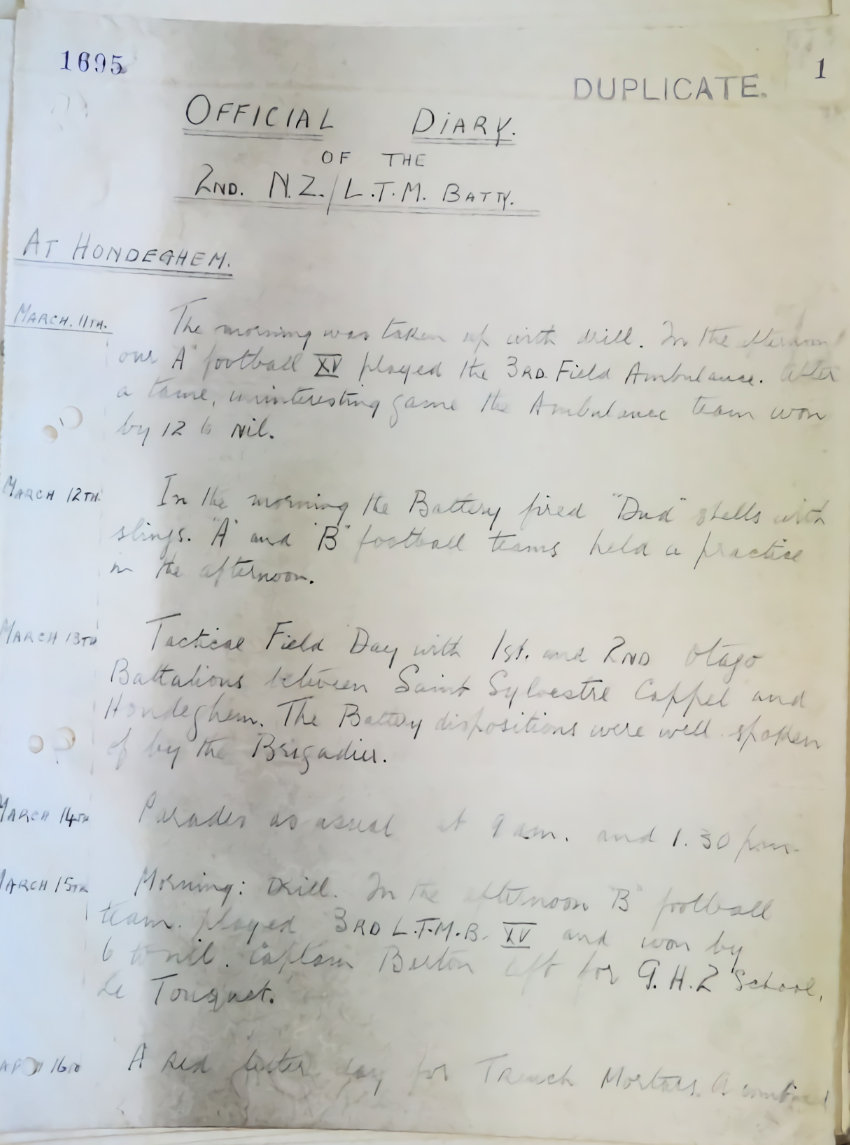 1695
DUPLICATE.
1
OFFICIAL DIARY.
OF THE
2ND. N.Z./L.T.M. BATTY.
AT HONDEGHEM.
MARCH. 11TH. The morning was taken up with drill. In the afternoon
our "A" football XV played the 3RD. Field Ambulance. After
a tame, uninteresting game the Ambulance team won
by 12 to nil.
MARCH 12TH. In the morning the Battery fired "Dud" shells with
slings. "A" and "B" football teams held a practice
in the afternoon.
MARCH 13TH Tactical Field Day with 1st. and 2ND Otago
Battalions between Saint Sylvestre Cappel and
Hondeghem. The Battery dispositions were well spoken
of by the Brigadier.
MARCH 14TH Parades as usual at 9 am. and 1.30 pm.
MARCH 15TH Morning: Drill. In the afternoon "B" football
team played 3RD L.T.M.B. XV and won by
6 to nil. Captain left for G.H.Q School,
Le Touquet.
16TH A red letter day for Trench Mortars. A combined